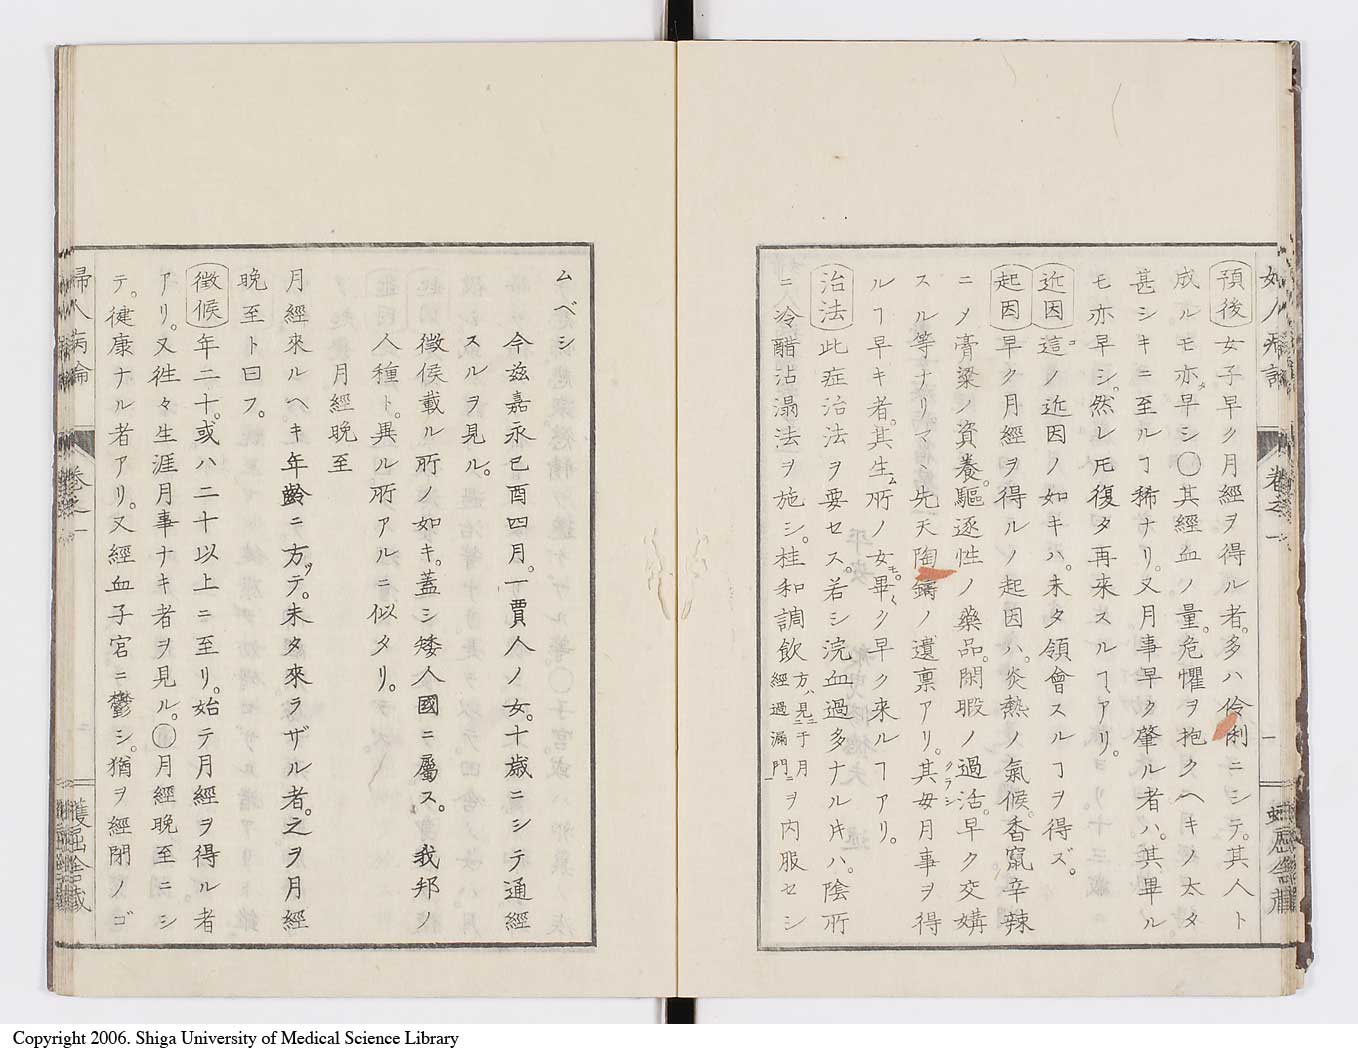 預後 女子早ク月經ヲ得ル者。多ハ伶悧ニシテ。其人ト
成ルモ亦タ早シ〇其經血ノ量。危懼ヲ抱クヘキノ太タ
甚シキニ至ルヿ稀ナリ。又月事早ク肇ル者ハ。其畢ル
モ亦早シ。然レ𪜈復タ再来スルヿアリ。
近因 這ノ近因ノ如キハ。未タ領會スルヿヲ得ズ。
起因 早ク月經ヲ得ルノ起因ハ。炎熱ノ氣候。香竄辛辣
ニメ膏粱ノ資養。驅逐性ノ藥品。閑暇ノ過活。早ク交媾
スル等ナリマヽ先天陶鑄ノ遺禀アリ。其毎月事ヲ得
ルヿ早キ者。其生ム所ノ女モ。畢ク早ク来ルヿアリ。
治法 此症治法ヲ要セス。若シ浣血過多ナル片ハ。陰所
ニ冷醋沾溻法ヲ施シ。桂和調飲 方ハ見ニ于月經過漏門一ニヲ内服セシ
ムベシ
今茲嘉永己酉四月。一賈人ノ女。十歳ニシテ通經
スルヲ見ル。
徴候載ル所ノ如キ。蓋シ矮人國ニ屬ス。我邦ノ
人種ト。異ル所アルニ似タリ。
月經晩至
月經來ルヘキ年齡ニ方ッテ。未タ來ラザル者。之ヲ月經
晩至ト曰フ。
徴候 年二十。或ハ二十以上ニ至リ。始テ月經ヲ得ル者
アリ。又徃々生涯月事ナキ者ヲ見ル。〇月經晩至ニシ
テ。健康ナル者アリ。又經血子宮ニ鬱シ。猶ヲ經閉ノゴ
婦人病論 卷之一
Copyright 2006. Shiga University of Medical Science Library